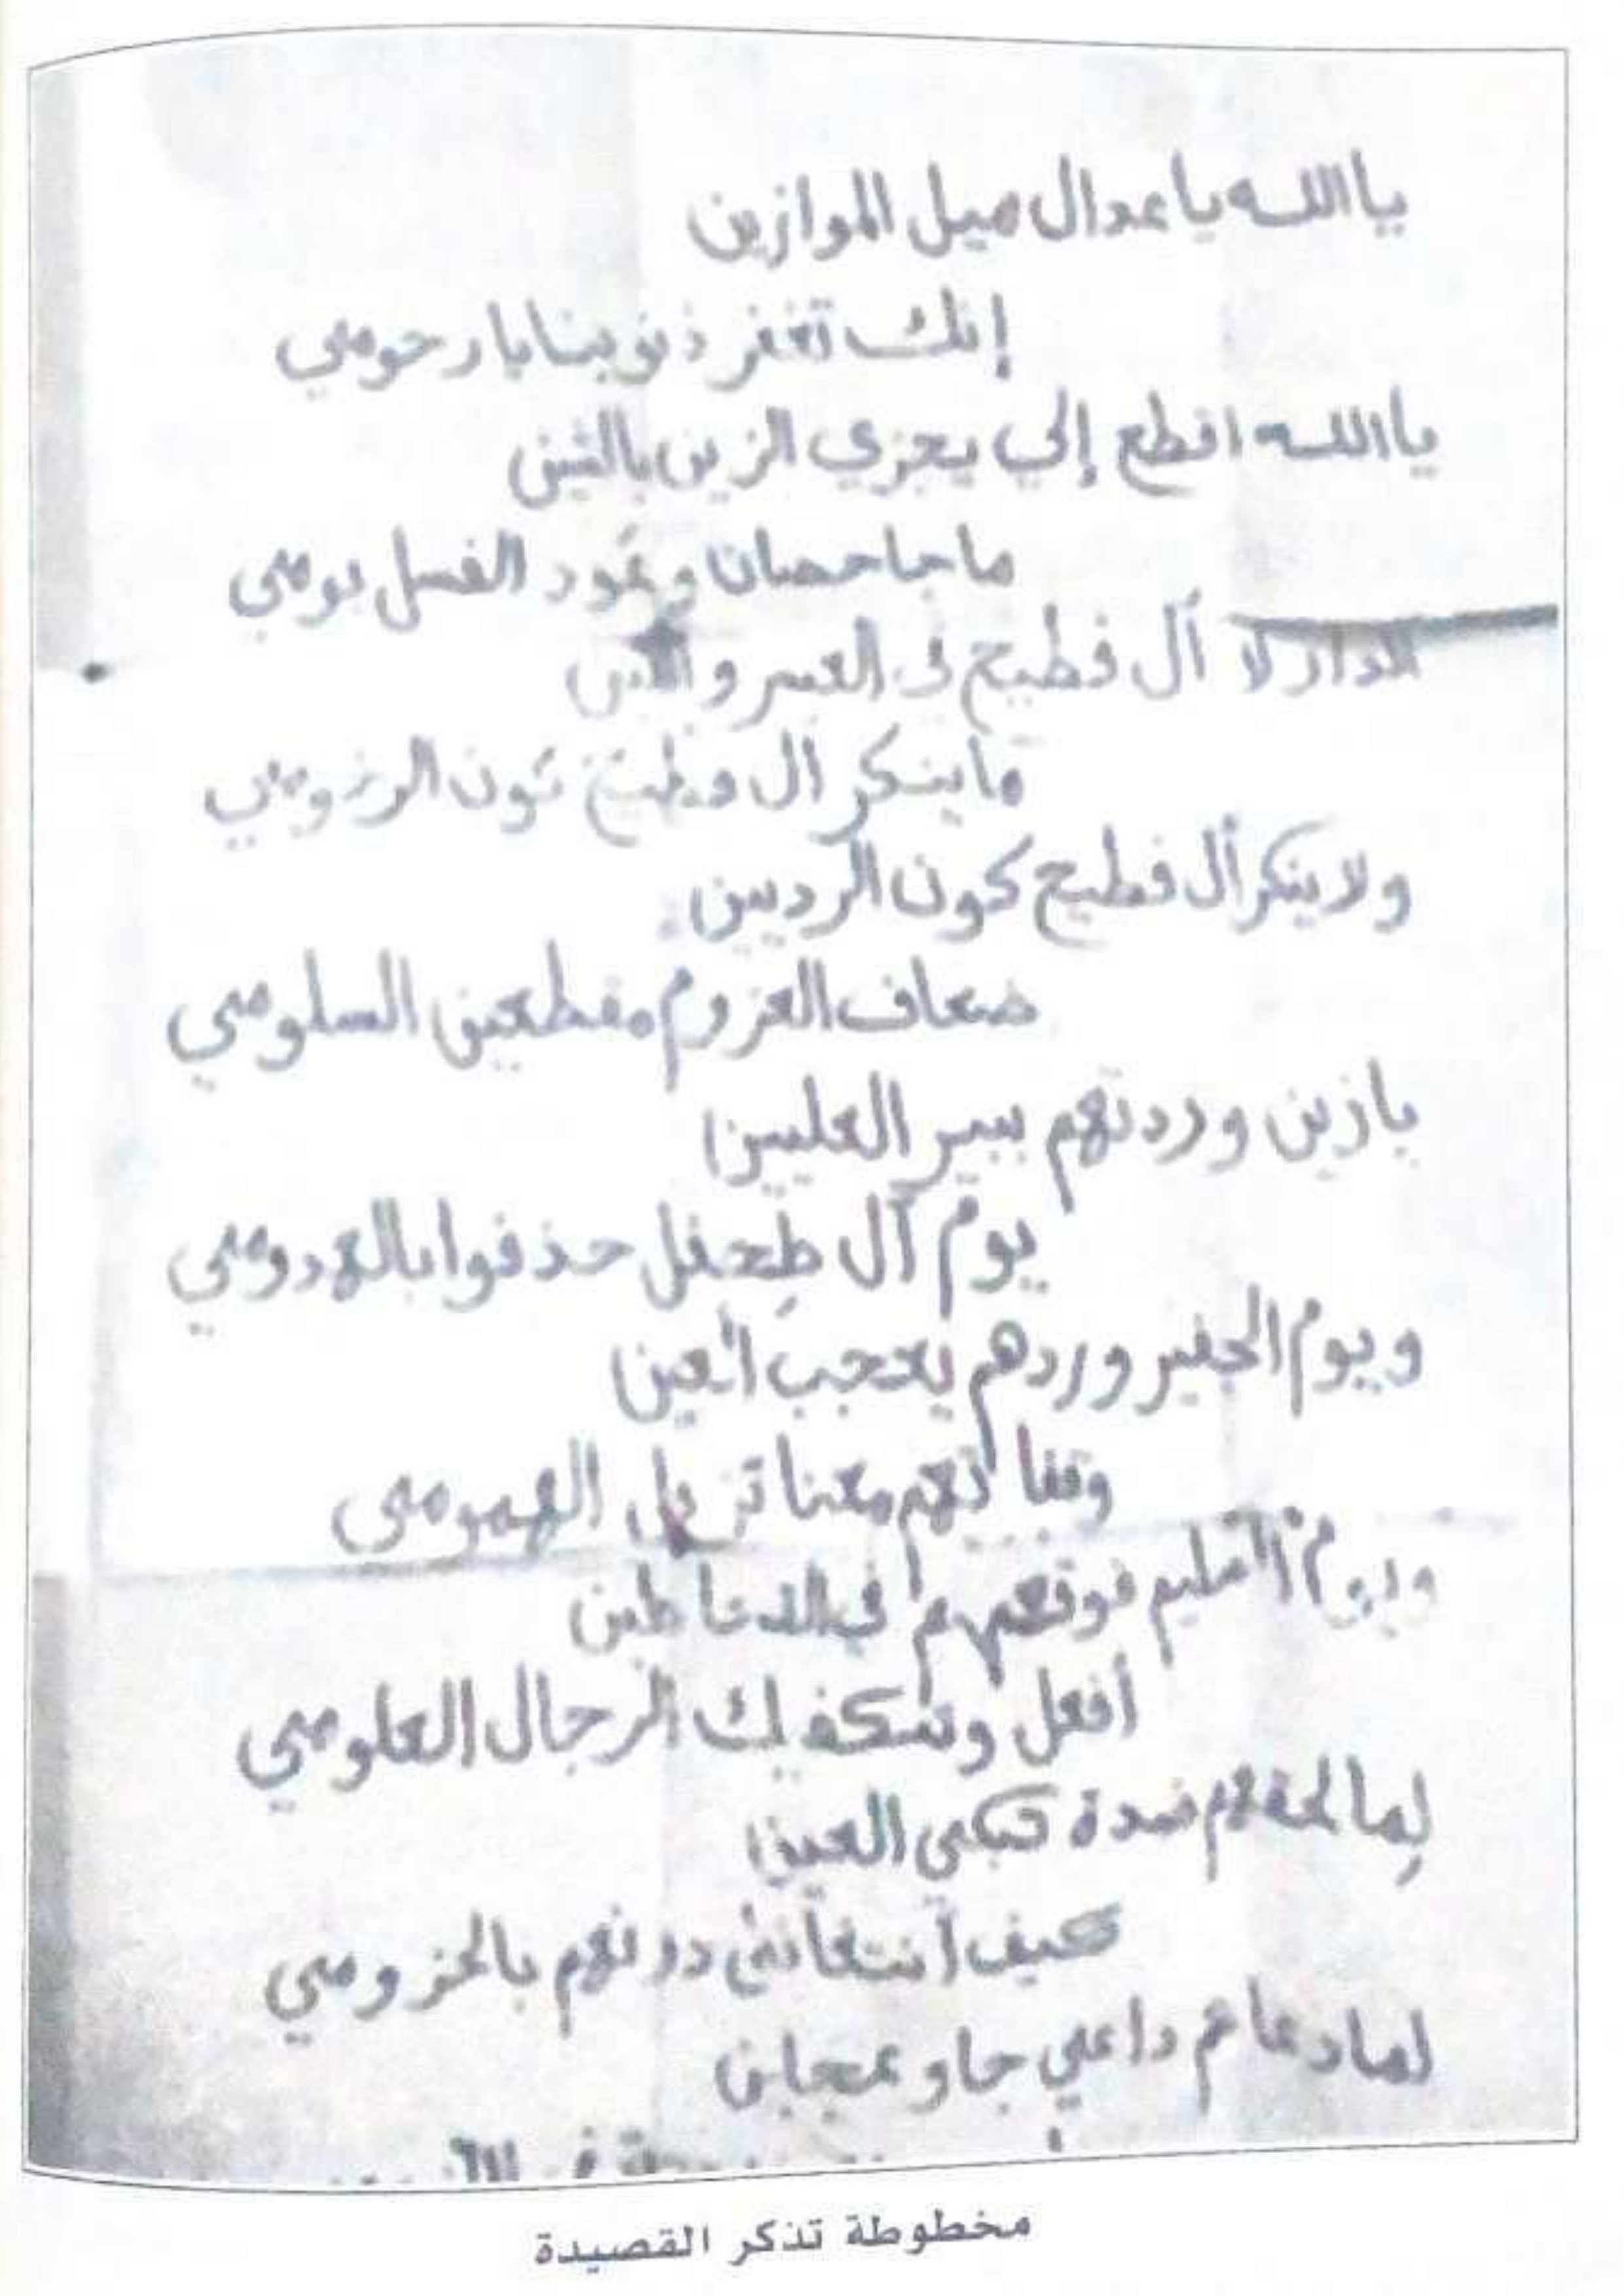 ياالله ياعدال ميل الموازين
إنك تغفر ذنوبنا يا رحومي
ياالله اقطع إلي يجزي الزين بالشين
ماجا حصان وعود الفسل يومي
الدار لا آل فطيح في العسر و
ماينكر آل فطيح كون
ولا ينكر آل فطيح كون الرديين
ضعاف العزوم مقطعين السلومي
يازين وردتهم ببير العليين
يوم آل طحفل حذفوا بالهدومي
ويوم الجفير وردهم يعجب العين
معنا تزيل الهمومي
ويوم
أفعل وشكفيك الرجال العلومي
لمالحقهم ضدة تبكي العين
كيف دونهم بالحزومي
لمادعاهم داعي جاو عجلين
مخطوطة تذكر القصيدة